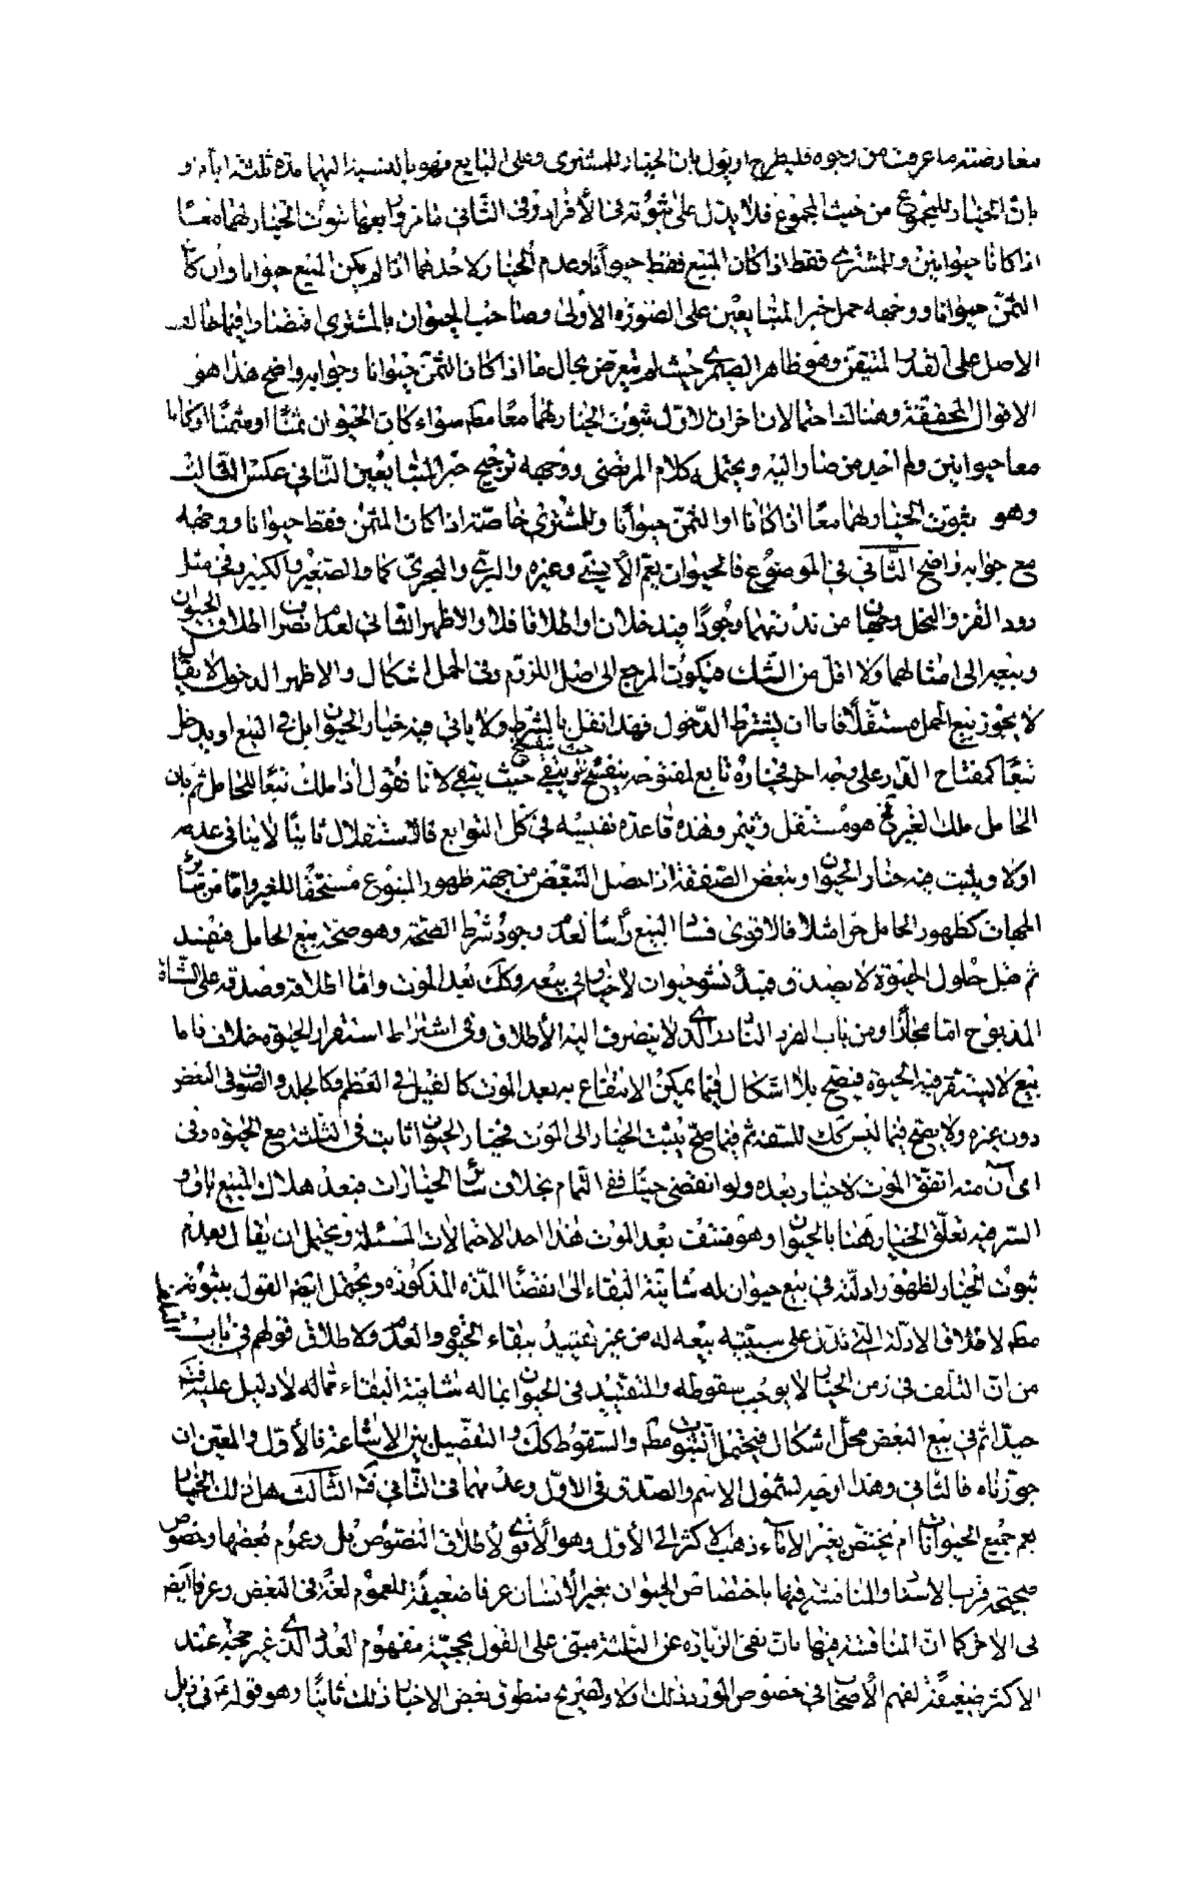 معارضته ما عرفت من وجوه فليطرح او يؤل بان الخيار للمشترى وعلى البايع فهو بالنسبة اليهما مدة ثلثة ايام و
بان الخيار للمجموع من حيث المجموع فلا يدل على ثبوته فى الأفراد وفى الثانى ما مر رابعها ثبوت الخيار لهما معا
اذا كانا حيوانين وللمشترى فقط اذا كان المبيع فقط حيوانا وعدم الخيار لاحدهما اذا لم يكن المبيع حيوانا وان كان
الثمن حيوانا ووجهه حمل خبر المتبايعين على الصورة الاولى وصاحب الحيوان بالمشترى اقتصارا فيما خالف
الاصل على القدر المتيقن وهو ظاهر الصيمرى حيث لم يتعرض بحال ما اذا كان الثمن حيوانا وجوابه واضح هذا هو
الاقوال المحققة وهناك احتمالان اخران الاول ثبوت الخيار لهما معا مط سواء كان الحيوان ثمنا او مثمنا او كانا
معا حيوانين ولم اجد من صار اليه ويحتمله كلام المرتضى ووجهه ترجيح خبر المتبايعين الثانى عكس الثالث
وهو ثبوت الخيار لهما معا اذا كانا او الثمن حيوانا وللمشترى خاصة اذا كان المثمن فقط حيوانا ووجهه
مع جوابه واضح الثانى فى الموضوع فالحيوان يعم الأنسى وغيره والبرى والبحرى كما والصغير والكبير وفى مثل
دود القز والنحل وجهان من ندرتهما وجودا فيدخلان او اطلاقا فلا والاظهر الثانى لعدم انصراف اطلاق الحيوان
وبيعه الى امثالهما ولا اقل من الشك فيكون المرجع الى اصل اللزوم وفى الحمل اشكال والاظهر الدخول لا يقال
لا يجوز بيع الحمل مستقلا فاما ان يشترط الدخول فهذا نقل بالشرط ولا ياتى فيه خيار الحيوان بل فى البيع او يدخل
تبعا كمفتاح الدار على وجه اخر فخياره تابع لمفتوحه ينفسخ حيث ينفسخ ويبقى حيث يبقى لانا نقول اذا ملك تبعا للحامل ثم بان
الحامل ملك لغيره فح هو مستقل وثيمر وهذه قاعدة نفيسة فى كل التوابع فالاستقلال ثانيا لا ينافى عدمه
اولا ويثبت فيه خيار الحيوان وتبعض الصفقة اذا حصل التبعض من جهة ظهور المتبوع مستحقا للغير واما من ساير
الجهات كظهور الحامل حرا مثلا فالاقوى فساد البيع راسا لعدم وجود شرط الصحة وهو صحة بيع الحامل فيفسد
ثم قبل حلول الحيوة لا يصدق مبدء نشو حيوان لاخيار فى بيعه وكك بعد الموت واما اطلاقه وصدقه على الشاة
المذبوح اما مجازا ومن باب الفرد النادر الذى لا ينصرف اليه الأطلاق وفى اشتراط استقرار الحيوة خلاف فاما
بيع لا يستقر فيه الحيوة فيصح بلا اشكال فيما يمكن الانتفاع به بعد الموت كالفيل فى العظم وكالجلد والصوف فى البعض
دون غيره ولا يصح فيما ليس كك للسفه ثم فيما صح يثبت الخيار الى الموت فخيار الحيوان ثابت فى الثلثة مع الحيوة وفى
اى آن منه اتفق الموت لا خيار بعده ولو انقضى حيا ففى التمام بخلاف ساير الخيارات فبعد هلاك المبيع باق و
السر فيه تعلق الخيار هنا بالحيوان وهو منتف بعد الموت هذا احد الاحتمالات المسئلة ويحتمل ان يقال بعدم
ثبوت الخيار لظهور ادلته فى بيع حيوان له شانية البقاء الى انقضاء المدة المذكورة ويحتمل ايضا القول بثبوته فيها
مط لاطلاق الادلة التى تدل على سببية بيعه له من غير تقييد ببقاء الحى والعدم ولاطلاق قولهم فى باب التلف
من ان التلف فى زمن الخيار لا يوجب سقوطه والتقييد فى الحيوان بماله شانية البقاء مما له لا دليل عليه فتم
جيدا ثم فى بيع البعض محل اشكال فيحتمل الثبوت مط والسقوط كك والتفصيل بين الاشاعة فالأول والمعين ان
جوزناه فالثانى وهذا اوجه لشمول الاسم والصدق فى الاول وعدمهما فى الثانى فتم الثالث هل ذلك الخيار
يعم جميع الحيوانات ام يختص بغير الاناسى ذهب الاكثر الى الأول وهو الأقوى لأطلاق النصوص بل وعموم بعضها وخصوص
صحيحة قرب الاسناد والمناقشة فيها باختصاص الحيوان بغير الأنسان عرفا ضعيفة للعموم لغة فى البعض وعرفا ايضا
فى الاخر كما ان المناقشة فيها بان نفى الزيادة عن الثلثة مبنى على القول بحجية مفهوم العدد الذى غير حجة عند
الاكثر ضعيفة لفهم الأصحاب فى خصوص المورد ذلك اولا ولصريح منطوق بعض الاخبار ذلك ثانيا وهو قوله ع فى ذيل